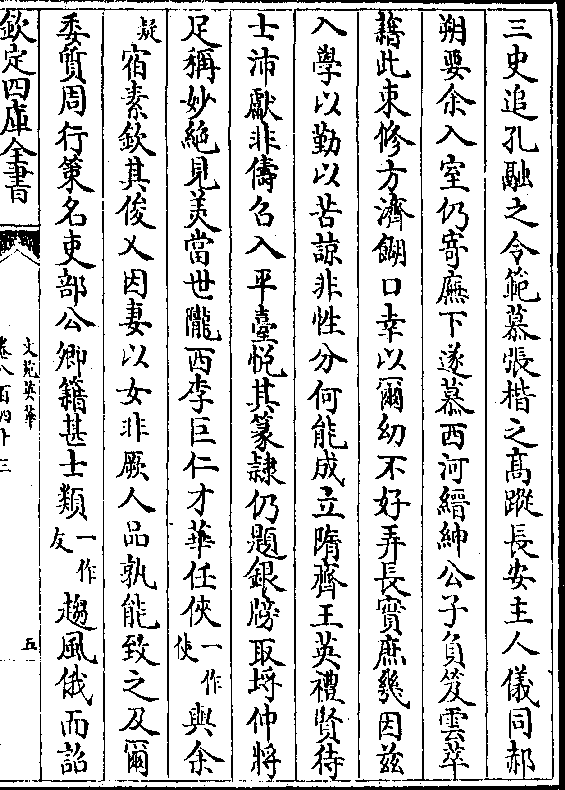 三史追孔融之令範慕張楷之髙蹤長安主人儀同郝
朔要余入室仍寄廡下遂慕西河縉紳公子負笈雲萃
藉此束修方濟餬口幸以爾幼不好弄長實庶幾因兹
入學以勤以苦諒非性分何能成立隋齊王英禮賢待
士沛獻非儔名入平臺悦其篆隷仍題銀牓取埒仲將
足稱妙絶見美當世隴西李巨仁才華任俠一作使與余
疑宿素欽其俊乂因妻以女非厥人品孰能致之及爾
委質周行策名吏部公卿籍甚士類一作友趨風俄而詔
欽定四庫全書
文苑英華
卷八百四十三
五